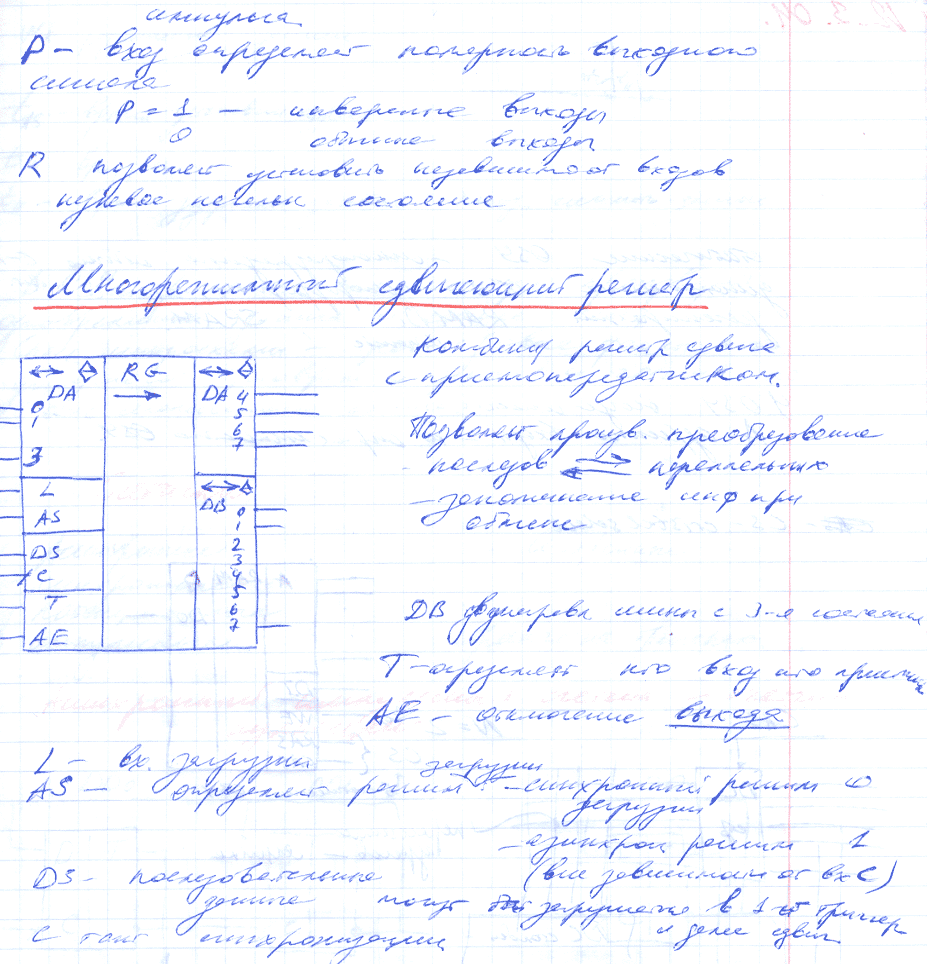 импульса
P – вход определяет полярность выходного
сигнала
P = 1 – инверсные выходы
0 обычные выходы
R позволяет установить независимо от входов
нулевое начальн состояние
Многорежимный сдвигающий регистр
RG
DA
0
1
3
L
AS
DS
C
T
AE
DA 4
5
6
7
DB 0
1
2
3
4
5
6
7
Комбинир регистр сдвига
с приемопередатчиком.
Позволяет произв. преобразование
- последов параллельных
- запоминание инф при
обмене
DB двунаправл шины с 3-я состояния
T – определяет кто вход кто приемник
AE – отключение выхода
L – вх. загрузки
AS – определяет режим загрузки - синхронный режим 0
загрузки
- асинхрон режим 1
(вне зависимости от вх C)
DS – последовательные
данные могут загружаться в 1-й триггер
и далее сдвиг.
C такт синхронизации